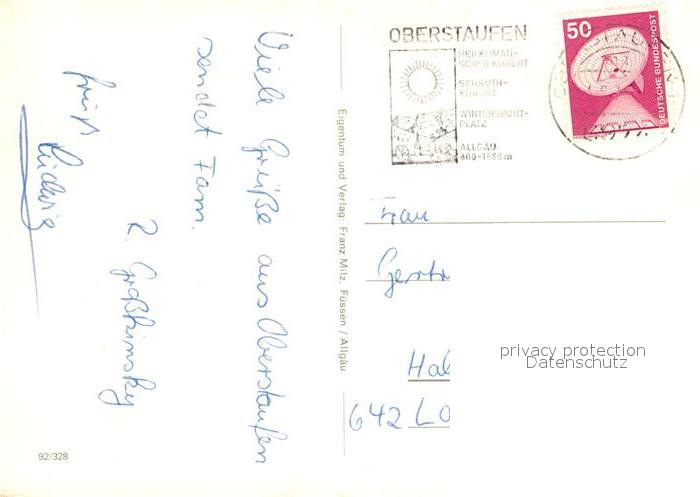 Viele Grüße aus Oberstaufen
sendet Fam.
R. Großkinsky
Gruß Ludwig
92/328
Eigentum und Verlag: Franz Milz, Füssen / Allgäu
OBERSTAUFEN
HEILKLIMATI-
SCHER KURORT
SCHROTH-
KURORT
WINTERSPORT-
PLATZ
ALLGÄU
800-1880 m
50
DEUTSCHE BUNDESPOST
Frau
Gertr
Hal
642 LO
privacy protection
Datenschutz